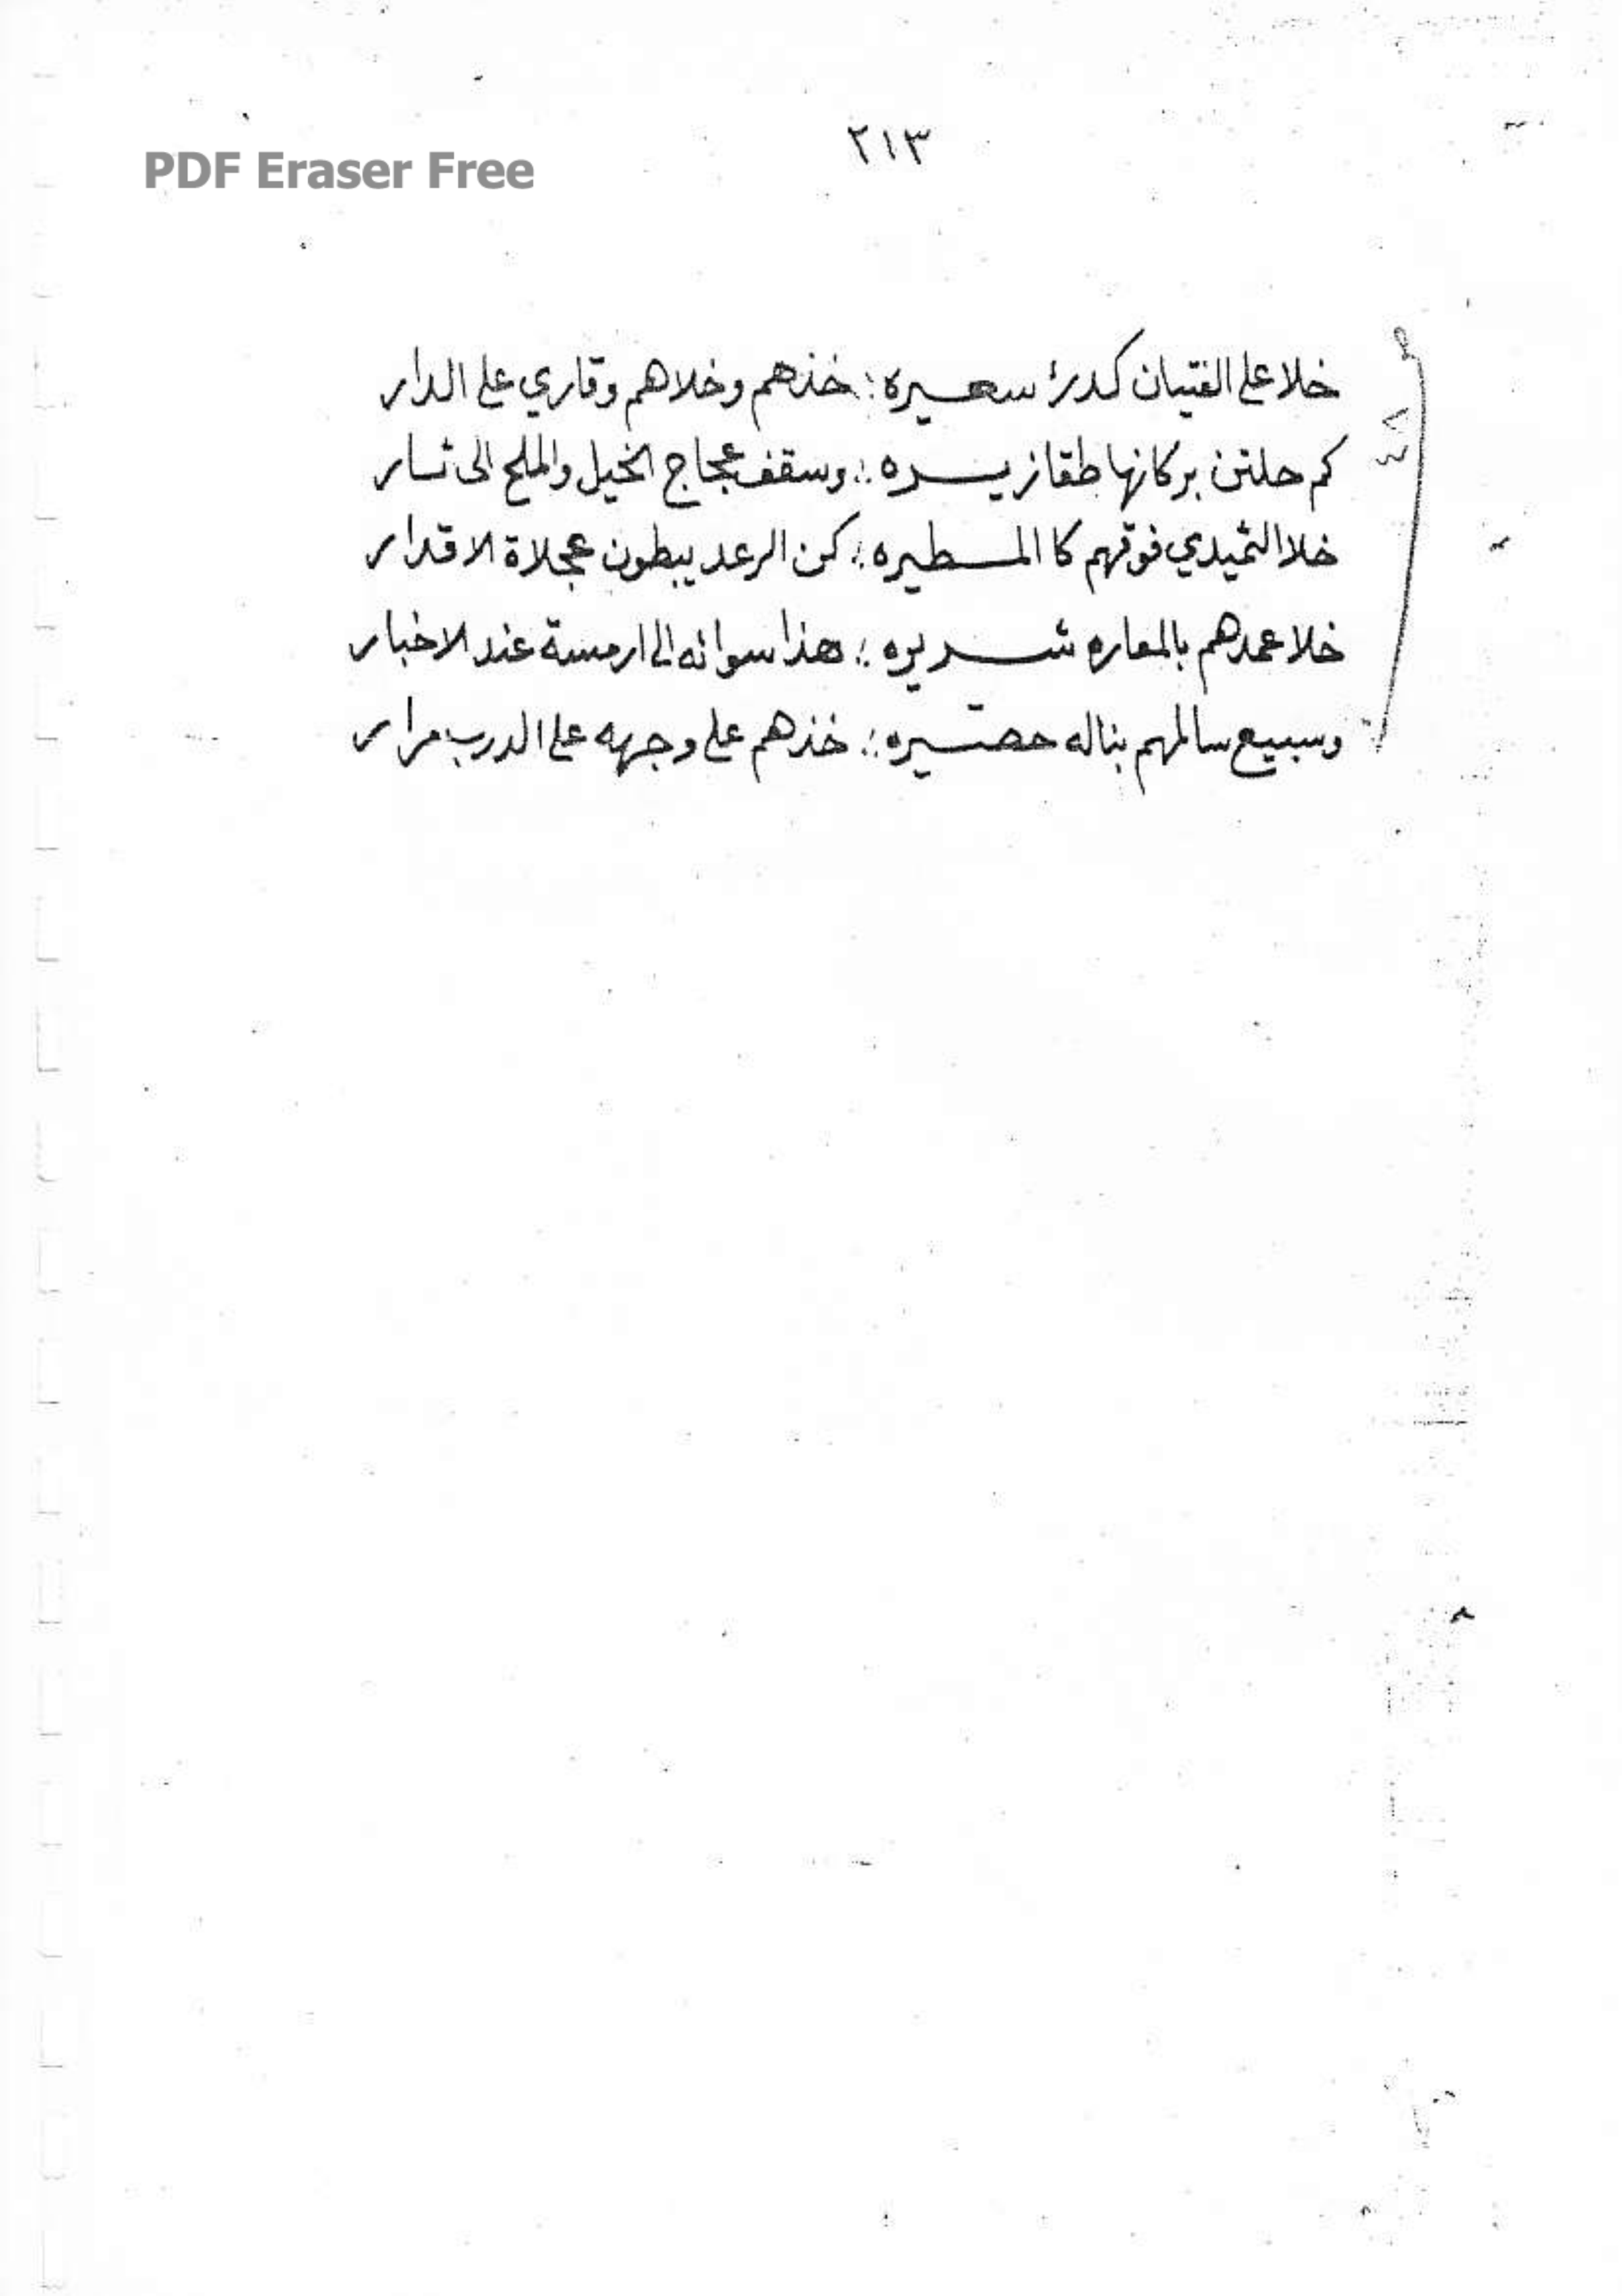 ٢١٣
PDF Eraser Free
خلا على الفتيان كدرئ سعيره ؛ خذهم وخلاهم وقاري على الدار
كم حلتن بركانها طقا زيسره ؛ وسقف عجاج الخيل والملح الى ثار
خلا الثميدي فوقهم كا المسطيره ؛ كن الرعد يبطون عجلاة الاقدار
خلا عمدهم بالمعاره شريره ؛ هذا سواته الى ارمسة عند الاخبار
وسبيع سالمهم بناله حصتيره ؛ خذهم على وجهه على الدرب مرار